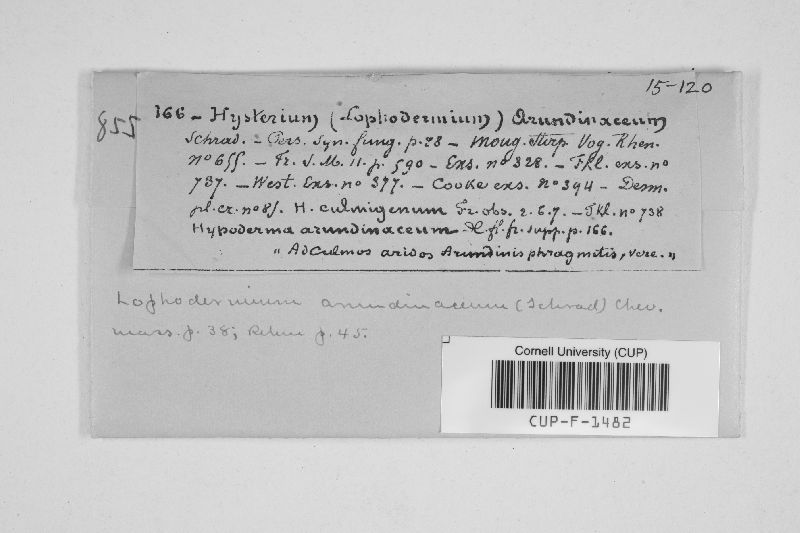 15-120
855
166 - Hysterium (Lophodermium) Arundinaceum
Schrad. - Pers. Syn. fung. p. 98 - Moug. stirp. Vog. Rhen.
nº 655. - Fr. S. M. II. p. 590 - Exs. nº 328. - Fkl. exs. nº
737. - West. Exs. nº 377. - Cooke exs. Nº 394 - Desm.
pl. cr. nº 85. H. culmigenum Fr. obs. 2. 6. 7. - Fkl. nº 738
Hypoderma arundinaceum DC. fl. fr. supp. p. 166.
" Ad Culmos aridos Arundinis phragmitis, Vere. "
Lophodermium arundinaceum (Schrad) Chev.
mass. p. 38; Rehm p. 45.
Cornell University (CUP)
CUP-F-1482